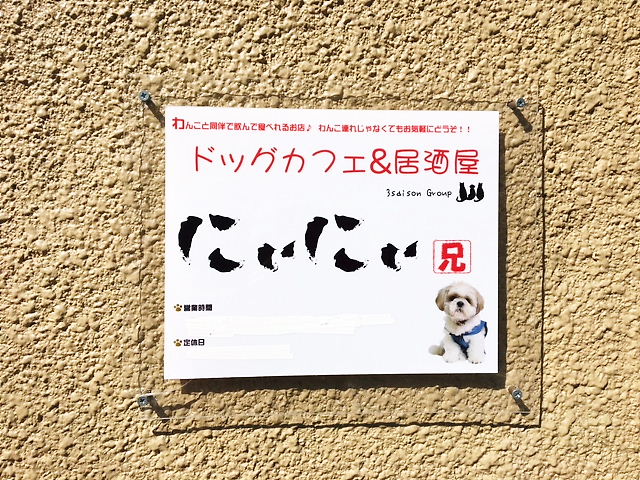 わんこと同伴で飲んで食べれるお店♪ わんこ連れじゃなくてもお気軽にどうぞ！！
ドッグカフェ&居酒屋
3saison Group
にぃにぃ 兄
営業時間
定休日